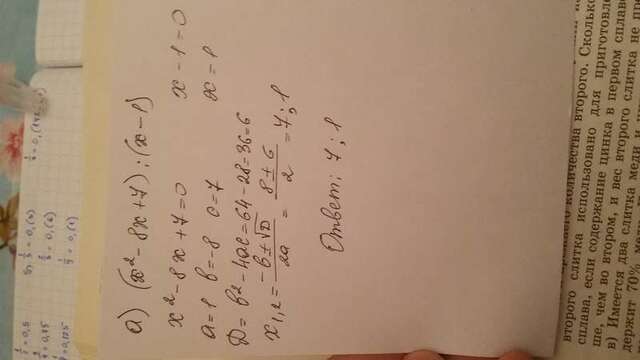 1/2 = 0,5
1/3 = 0,(3)
= 0,125
1/9 = 0,(1)
а) (x² - 8x + 7) : (x - 1)
x² - 8x + 7 = 0
x - 1 = 0
a = 1 b = -8 c = 7
x = 1
D = b² - 4ac = 64 - 28 = 36 = 6
x₁,₂ = -b ± √D / 2a = 8 ± 6 / 2 = 7; 1
Ответ: 7; 1
количества второго. Сколько
второго слитка использовано для приготовле
сплава, если содержание цинка в первом сплав
ше, чем во втором, и вес второго слитка не
в) Имеется два слитка меди и
держит 70% меди